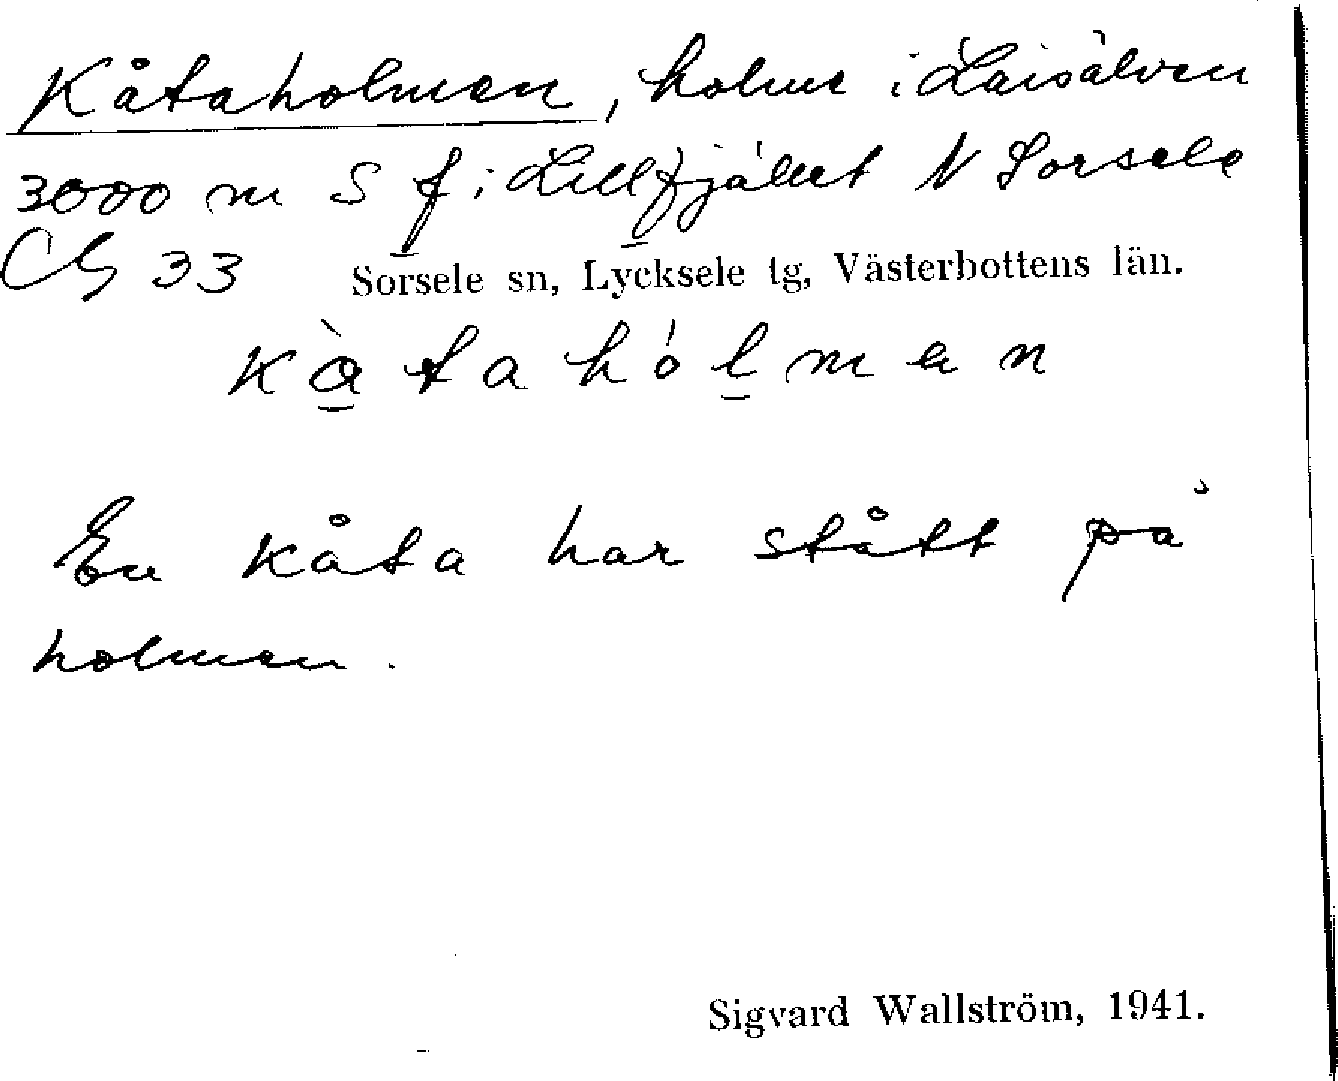 Kåtaholmen, holme i Laisälven
3000 m S f i Lillfjället N Sorsele
CG 33 Sorsele sn, Lycksele tg, Västerbottens län.
kà̱tahóḻmen
En kåta har stått på
holmen.
Sigvard Wallström, 1941.